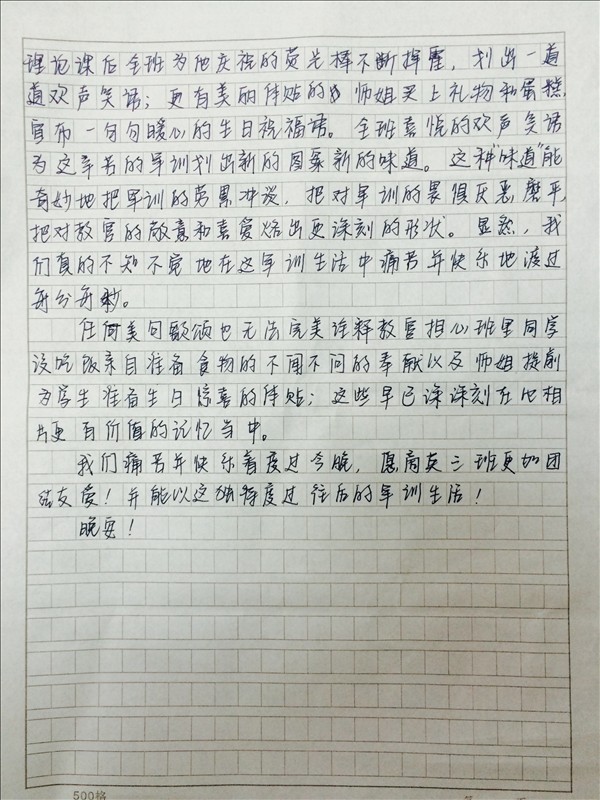 理论课后全班为他庆祝的荧光棒不断挥霍，划出一道
道欢声笑语；更有美丽体贴的 师姐买上礼物和蛋糕，
宣布一句句暖心的生日祝福语。全班喜悦的欢声笑语
为这辛苦的军训划出新的图案新的味道。这种"味道"能
奇妙地把军训的劳累冲淡，把对军训的畏惧厌恶磨平，
把对教官的敬意和喜爱烙出更深刻的形状。显然，我
们真的不知不觉地在这军训生活中痛苦并快乐地渡过
每分每秒。
任何美句歌颂也无法完美诠释教官担心班里同学
没吃饭亲自准备食物的不闻不问的奉献以及师姐提前
为学生准备生日惊喜的体贴；这些早已深深刻在比相
片更有价值的记忆当中。
我们痛苦并快乐着度过今晚，愿商英三班更加团
结友爱！并能以这独特度过往后的军训生活！
晚安！
500格